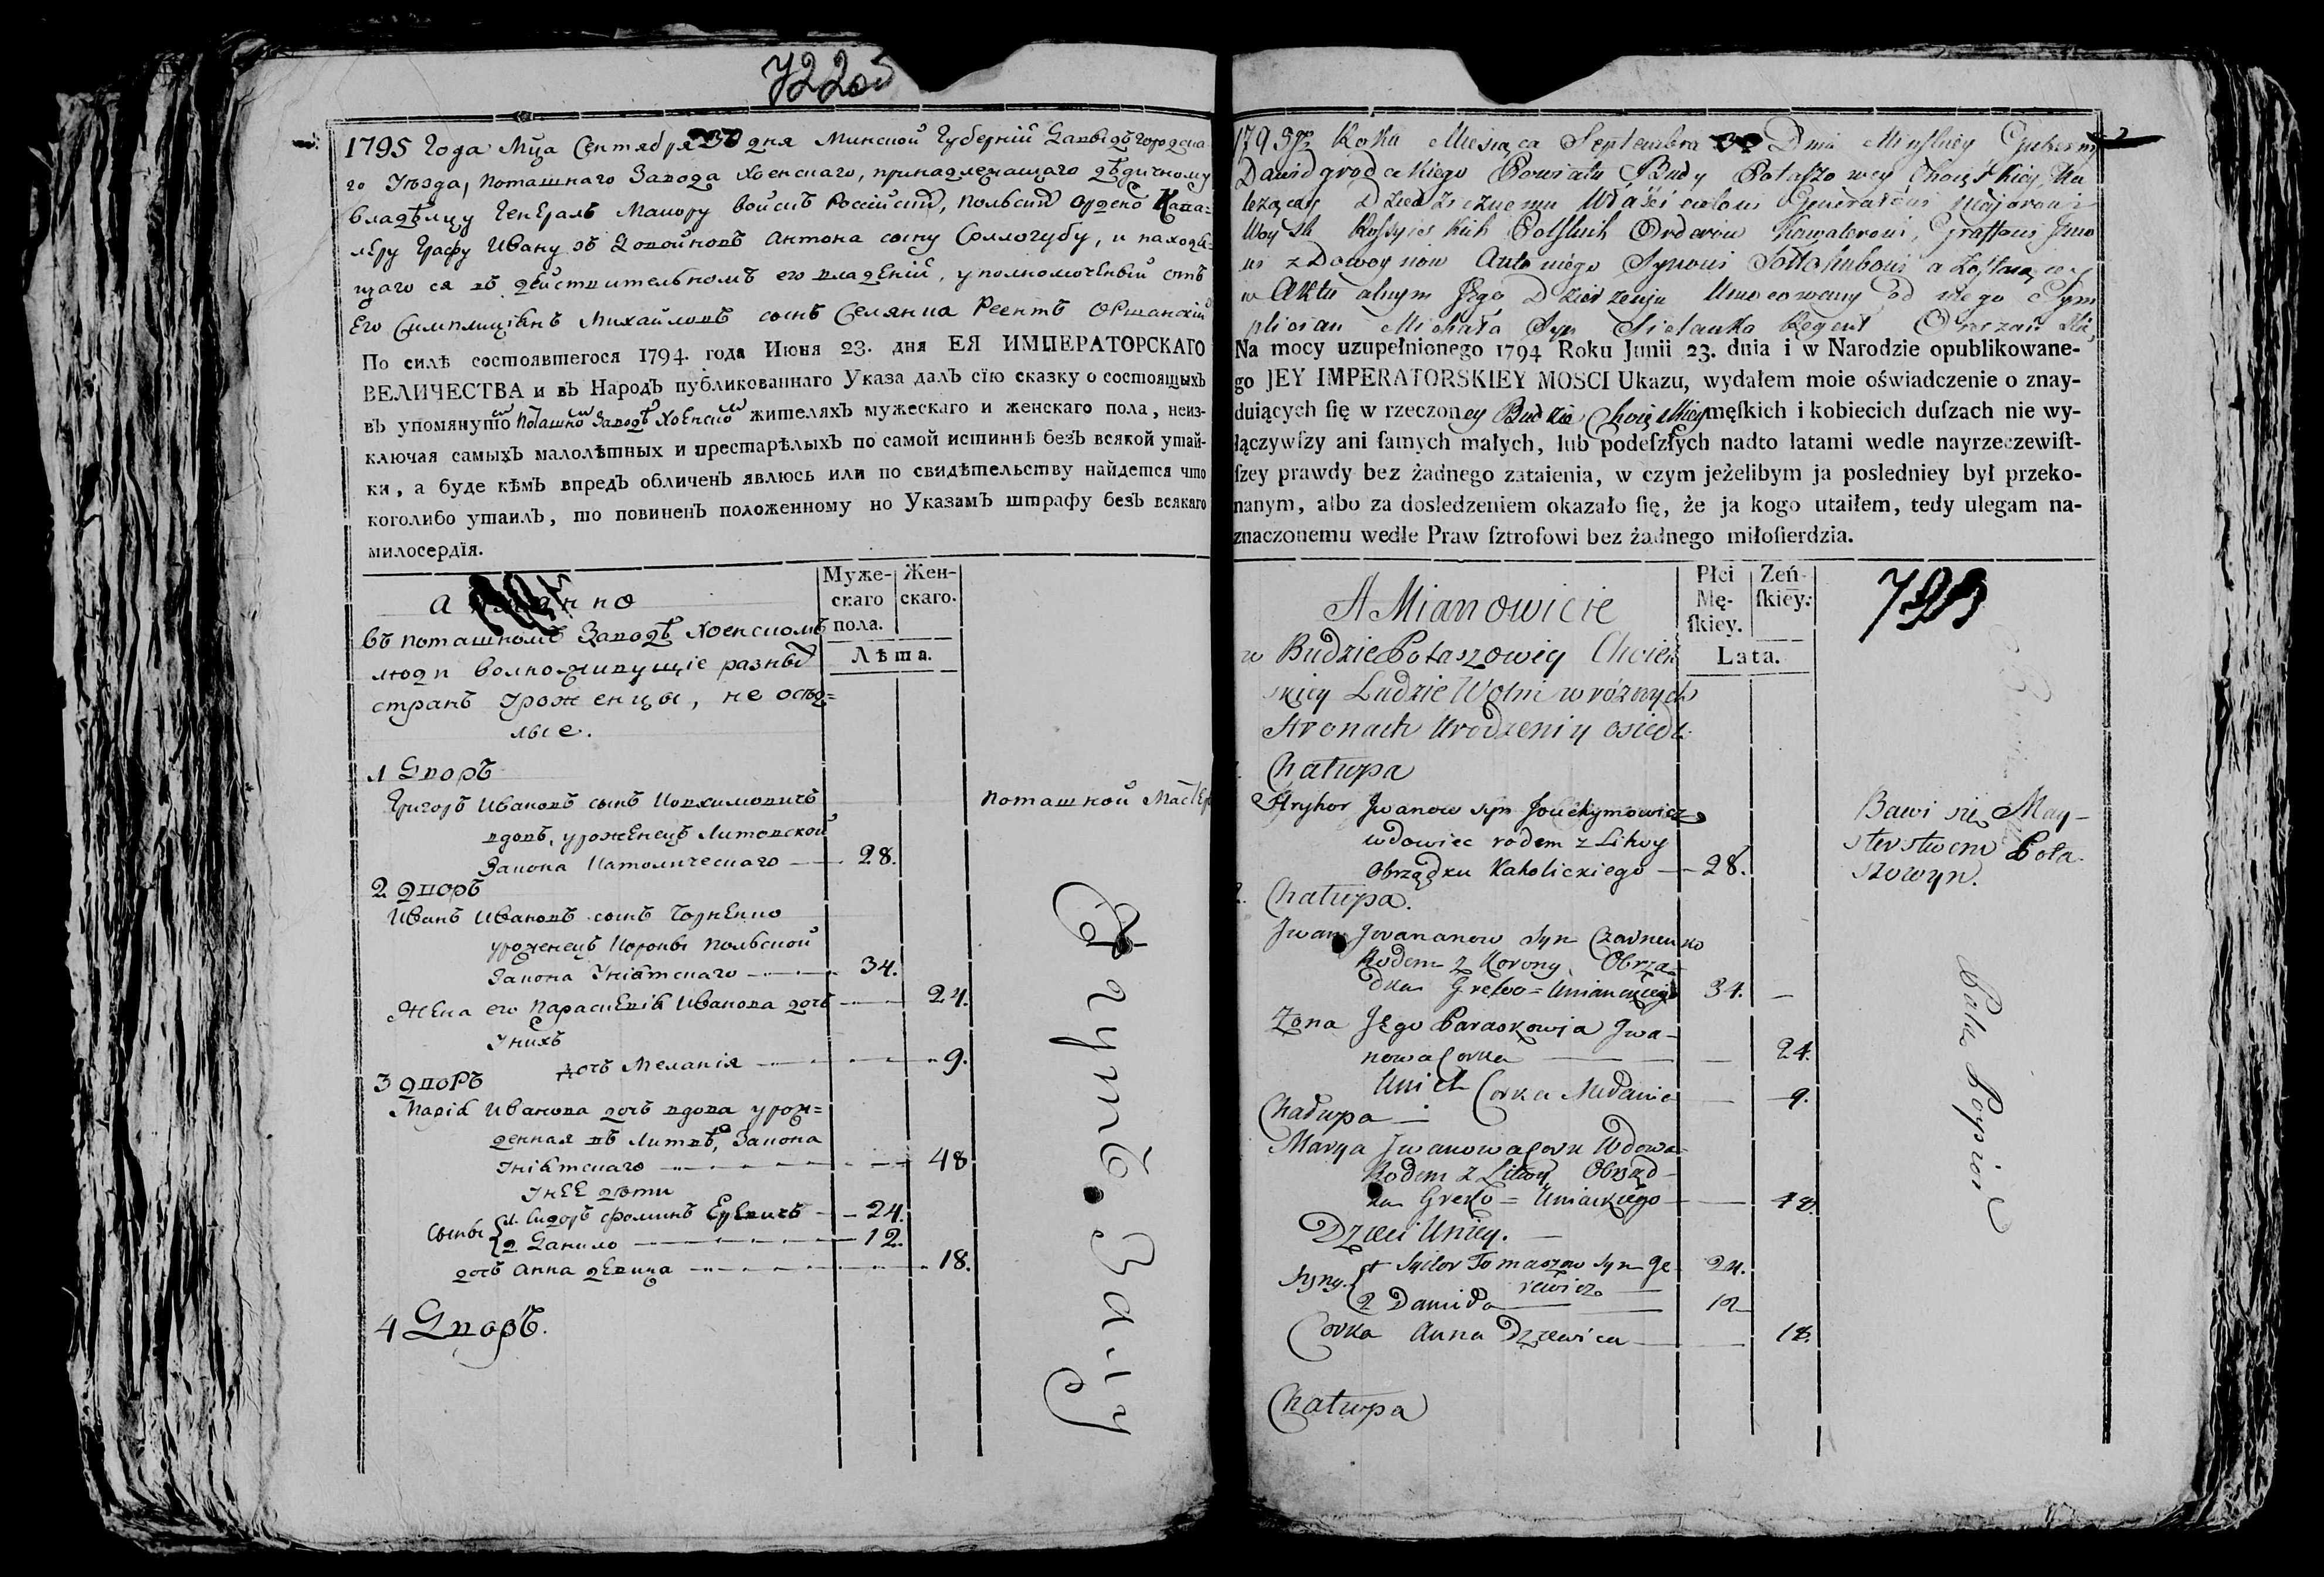 722 об
1795 Года Мца Сентября 30 дня Минской Губернїи Давыдъгородска
го Уѣзда, поташнаго Завода Хоенскаго, принадлежащаго дѣдичному
владѣлцу Генералъ Маиору войскъ Россійски, польски ордено Кава=
леру Графу Ивану зъ Довойновъ Антона сыну Соллогубу, и находя=
щаго ся въ действительномъ его владѣнїи, уполномоченый отъ
Его Симплицїянъ Михайловъ сынъ Селянка Реентъ Оршанскїй
По силѣ состоявшегося 1794. года Июня 23. дня ЕЯ ИМПЕРАТОРСКАГО
ВЕЛИЧЕСТВА и въ Народъ публикованнаго Указа далъ сїю сказку о состоящыхъ
въ упомянуто поташно Заводѣ Хоенско жителяхъ мужескаго и женскаго пола, неиз-
ключая самыхъ малолѣтныхъ и престарѣлыхъ по самой истиннѣ безъ всякой утай-
ки, а буде кѣмъ впредъ обличенъ явлюсь или по свидѣтельству найдется что
коголибо утаилъ, то повиненъ положенному по Указамъ штрафу безъ всякаго
милосердїя.
Муже-
скаго
пола.
Жен-
скаго.
Лѣта.
а имянно
въ поташномъ Заводѣ Хоенскомъ
люди волноживущіе разныхъ
странъ Уроженцы, не осѣд=
лые.
1 Дворъ
Григоръ Ивановъ сынъ Иовхимовичъ
вдовъ, уроженецъ Литовской
Закона Католическаго — 28.
поташной Мастер
2 дворъ
Иванъ Ивановъ сынъ Чорненко
уроженецъ Короны польской
Закона Унїятскаго — 34.
Жена его параскевїя Иванова дочь — 24.
Унихъ
дочь Меланїя — 9.
3 дворъ
Марїя Иванова дочь вдова урож=
денная въ Литвѣ, Закона
Унїятскаго — 48
Унее дѣти
Сыны { 1. Сидоръ Фоминъ Еревичъ — 24.
2 Данило — 12.
дочь Анна девица — 18.
4 Дворъ.
1795go Roku Miesiąca Septembra 30 Dnia Minskiey Gubernii
Dawidgrodzckiego Powiatu Budy Potaszowey Choięskiey, Na
leżącey Dziedzicznemu Właścicielowi Generałowi Majorowi
Woysk Rossyiskich Polskich Orderow Kawalerowi, Graffowi Jwa
nowi z Dowoynow Antoniego Synowi Sołłohubowi a Zostaiącey
w Aktualnym Jego Dzierżeniu Umocowany od niego Sym
plician Michała Syn Sielanka Regent Orszański
Na mocy uzupełnionego 1794 Roku Junii 23. dnia i w Narodzie opublikowane-
go JEY IMPERATORSKIEY MOSCI Ukazu, wydałem moie oświadczenie o znay-
duiących ſię w rzeczoney Budzie Choięskiey męſkich i kobiecich duſzach nie wy-
łączywſzy ani ſamych małych, lub podeſzłych nadto latami wedle nayrzeczewiſt-
ſzey prawdy bez żadnego zataienia, w czym jeżelibym ja posledniey był przeko-
nanym, albo za dosledzeniem okazało ſię, że ja kogo utaiłem, tedy ulegam na-
znaczonemu wedle Praw ſztrofowi bez żadnego miłoſierdzia.
Płci
Mę-
ſkiey.
Zeń-
ſkiey.
Lata.
723
A Mianowicie
w Budzie Potaszowey Choień
skiey Ludzie Wolni w róznych
Stronach Urodzeni y osiedl.
Chałupa
Hryhor Jwanow syn Jouchymowicz
wdowiec rodem z Litwy
Obrządku Katolickiego — 28.
Bawi się May-
sterstwem Pota-
szowym.
2. Chałupa.
Jwan Jwananow Syn Czarnenko
Rodem z Korony Obrzą-
dku Greko=Uniackiego 34. —
Zona Jego Paraskowja Jwa-
nowa Corka — 24.
Unich Corka Melania — 9.
Chałupa
Marya Jwanowa Corka Wdowa
Rodem z Litwy Obrząd-
ku Greko=Uniackiego — 48.
Dzieci Uniey.
Syny { 1 Sydor Tomaszow syn Je- 24.
rewicz
2 Daniło — 12
Corka Anna Dziewica — 18.
Chałupa